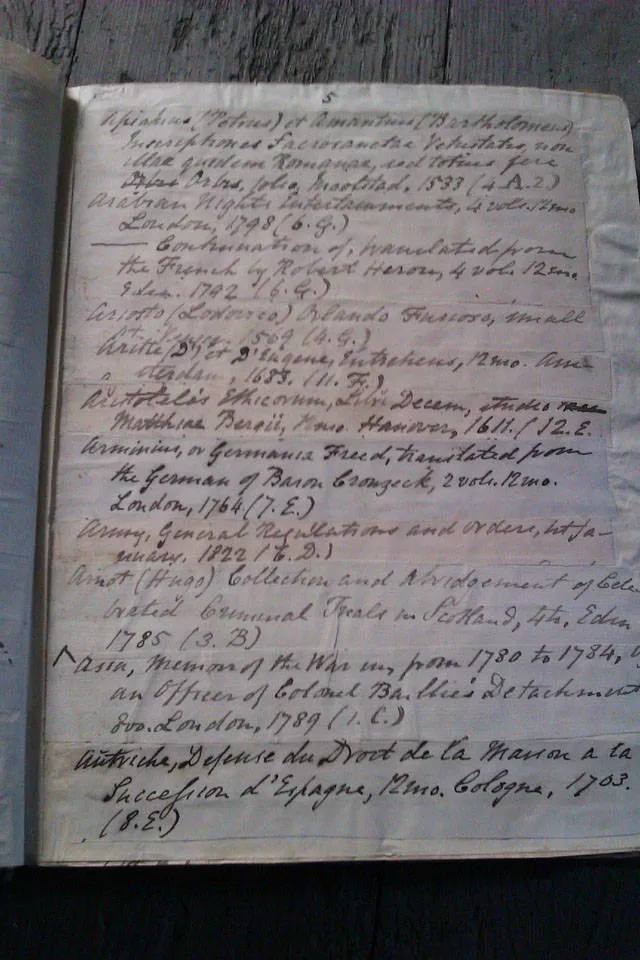 5
Apianus (Petrus) et Amantius (Bartholomeus)
Inscriptiones Sacrosanctae Vetustatis, non
illae quidem Romanae, sed totius fere
Orbis Orbis, folio, Ingolstad, 1533 (4.A.2)
Arabian Nights Entertainments, 4 vols. 12mo
London, 1798 (6.G.)
— Continuation of, translated from
the French by Robert Heron, 4 vols. 12mo
Edin. 1792 (6.G.)
Ariosto (Lodovico) Orlando Furioso, small
1569 (4.G.)
Ariste (D') et D'Eugene, Entretiens, 12mo. Am-
sterdam, 1683. (11.F.)
Aristoteles Ethicorum, Libri Decem, studio
Matthiae Bergii, 12mo. Hanover, 1611. (12.E.
Arminius, or Germania Freed, translated from
the German of Baron Cronzeck, 2 vols. 12mo.
London, 1764 (7.E.)
Army, General Regulations and orders, 1st Ja-
nuary, 1822 (E.D.)
Arnot (Hugo) Collection and Abridgement of Cele
brated Criminal Trials in Scotland, 4to, Edin
1785 (3.B)
^ Asia, Memoir of the War in, from 1780 to 1784,
an Officer of Colonel Baillie's Detachment
8vo. London, 1789 (1.C.)
Autriche, Defense du Droit de la Maison a la
Succession d'Espagne, 12mo. Cologne, 1703.
(8.E.)